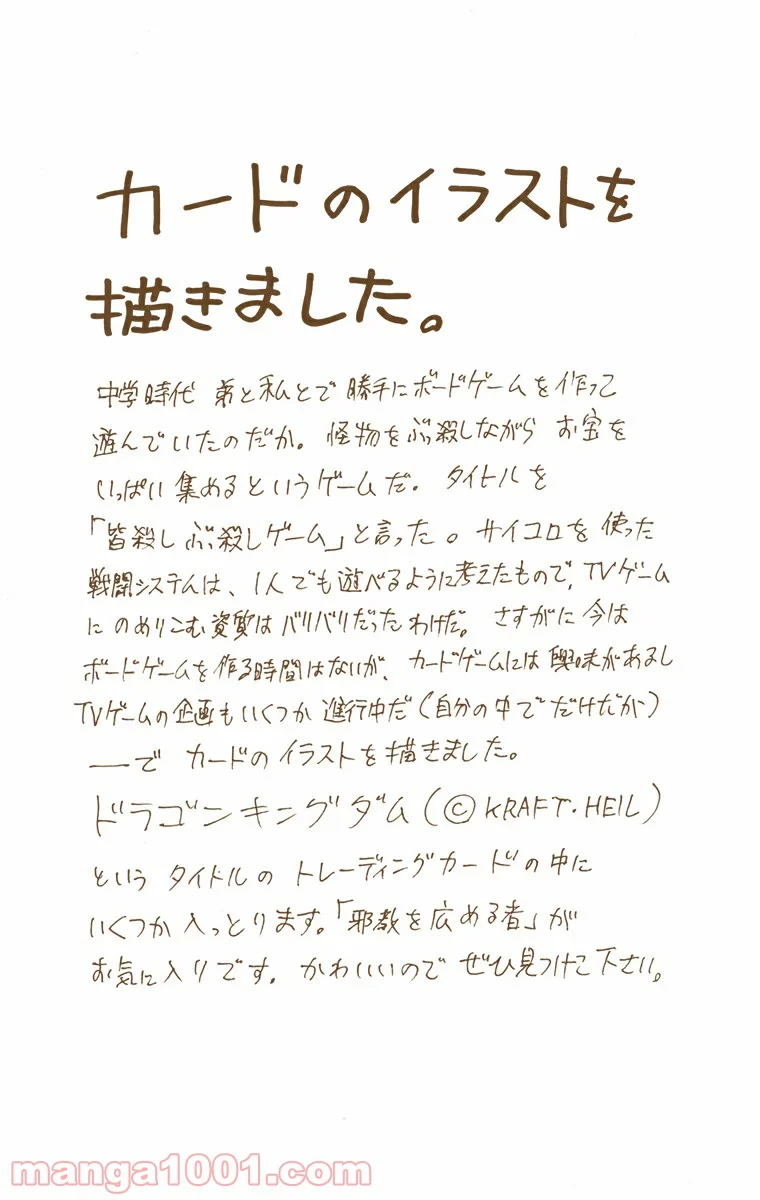 カードのイラストを
描きました。
中学時代 弟と私とで勝手にボードゲームを作って
遊んでいたのだか。怪物をぶっ殺しながら お宝を
いっぱい集めるというゲームだ。タイトルを
「皆殺しぶっ殺しゲーム」と言った。サイコロを使った
戦闘システムは、1人でも遊べるように考えたもので、TVゲーム
にのめりこむ資質はバリバリだったわけだ。さすがに今は
ボードゲームを作る時間はないが、カードゲームには興味があるし
TVゲームの企画もいくつか進行中だ(自分の中でだけだが)
――で カードのイラストを描きました。
ドラゴンキングダム(©KRAFT・HEIL)
という タイトルの トレーディングカードの中に
いくつか入っとります。「邪教を広める者」が
お気に入りです。かわいいので ぜひ見つけて下さい。
manga1001.com